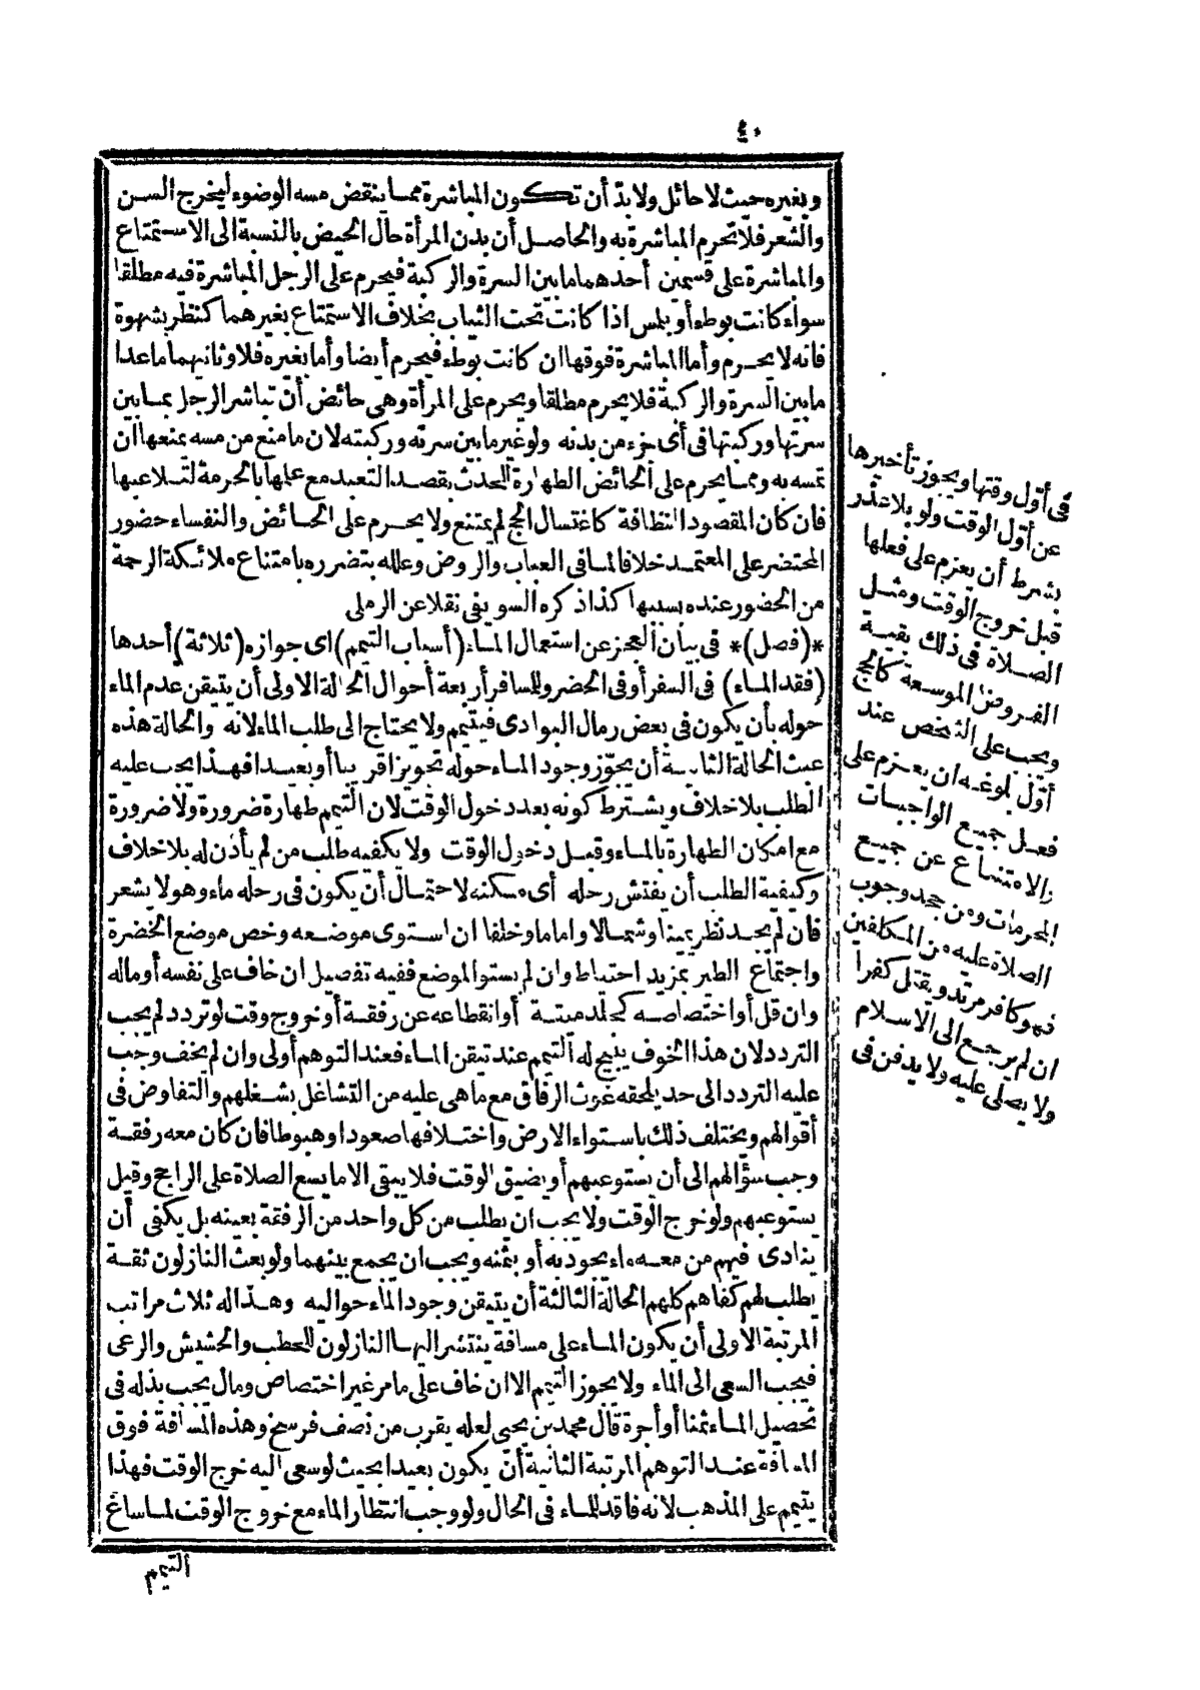 ٤٠
وبغيره حيث لا حائل ولا بدّ أن تكون المباشرة مما ينقض مسه الوضوء ليخرج السن
والشعر فلا تحرم المباشرة به والحاصل أن بدن المرأة حال الحيض بالنسبة الى الاستمتاع
والمباشرة على قسمين أحدهما ما بين السرة والركبة فيحرم على الرجل المباشرة فيه مطلقا
سواء كانت بوطء أو بلمس اذا كانت تحت الثياب بخلاف الاستمتاع بغيرهما كنظر بشهوة
فانه لا يحرم وأما المباشرة فوقها ان كانت بوطء فيحرم أيضا وأما بغيره فلا وثانيهما ما عدا
ما بين السرة والركبة فلا يحرم مطلقا ويحرم على المرأة وهي حائض أن تباشر الرجل بما بين
سرتها وركبتها فى أى جزء من بدنه ولو غير ما بين سرته وركبته لان ما منع من مسه يمنعها أن
تمسه به ومما يحرم على الحائض الطهارة للحدث بقصد التعبد مع علمها بالحرمة لتلاعبها
فان كان المقصود النظافة كاغتسال الحج لم يمتنع ولا يحرم على الحائض والنفساء حضور
المحتضر على المعتمد خلافا لما فى العباب والروض وعلله بتضرره بامتناع ملائكة الرحمة
من الحضور عنده بسببها كذا ذكره السويفى نقلا عن الرملى
*(فصل)* فى بيان العجز عن استعمال الماء (أسباب التيمم) اى جوازه (ثلاثة) أحدها
(فقد الماء) فى السفر أو فى الحضر وللمسافر أربعة أحوال الحالة الاولى أن يتيقن عدم الماء
حوله بأن يكون فى بعض رمال البوادى فيتيمم ولا يحتاج الى طلب الماء لانه والحالة هذه
عبث الحالة الثانية أن يجوّز وجود الماء حوله تجويزا قريبا أو بعيدا فهذا يجب عليه
الطلب بلا خلاف ويشترط كونه بعد دخول الوقت لان التيمم طهارة ضرورة ولا ضرورة
مع امكان الطهارة بالماء وقبل دخول الوقت ولا يكفيه طلب من لم يأذن له بلا خلاف
وكيفية الطلب أن يفتش رحله أى مسكنه لاحتمال أن يكون فى رحله ماء وهو لا يشعر
فان لم يجد نظر يمينا وشمالا واماما وخلفا ان استوى موضعه وخص موضع الخضرة
واجتماع الطير بمزيد احتياط وان لم يستو الموضع ففيه تفصيل ان خاف على نفسه أو ماله
وان قل أو اختصاصه كجلد ميتة أو انقطاعه عن رفقة أو خروج وقت لو تردد لم يجب
التردد لان هذا الخوف يبيح له التيمم عند تيقن الماء فعند التوهم أولى وان لم يخف وجب
عليه التردد الى حد يلحقه غوث الرفاق مع ما هى عليه من التشاغل بشغلهم والتفاوض فى
أقوالهم ويختلف ذلك باستواء الارض واختلافها صعودا وهبوطا فان كان معه رفقة
وجب سؤالهم الى أن يستوعبهم أو يضيق الوقت فلا يبقى الا ما يسع الصلاة على الراجح وقيل
يستوعبهم ولو خرج الوقت ولا يجب ان يطلب من كل واحد من الرفقة بعينه بل يكفى أن
ينادى فيهم من معه ماء يجود به أو بثمنه ويجب ان يجمع بينهما ولو بعث النازلون ثقة
يطلب لهم كفاهم كلهم الحالة الثالثة أن يتيقن وجود الماء حواليه وهذا له ثلاث مراتب
المرتبة الاولى أن يكون الماء على مسافة ينتشر اليها النازلون للحطب والحشيش والرعى
فيجب السعى الى الماء ولا يجوز التيمم الا ان خاف على ما مر غير اختصاص ومال يجب بذله فى
تحصيل الماء ثمنا أو أجرة قال محمد بن يحيى لعله يقرب من نصف فرسخ وهذه المسافة فوق
المسافة عند التوهم المرتبة الثانية أن يكون بعيدا بحيث لو سعى اليه خرج الوقت فهذا
يتيمم على المذهب لانه فاقد للماء فى الحال ولو وجب انتظار الماء مع خروج الوقت لما ساغ
التيمم
فى أوّل وقتها ويجوز تأخيرها
عن أوّل الوقت ولو بلا عذر
بشرط أن يعزم على فعلها
قبل خروج الوقت ومثل
الصلاة فى ذلك بقية
الفروض الموسعة كالحج
ويجب على الشخص عند
أوّل بلوغه ان يعزم على
فعل جميع الواجبات
والامتناع عن جميع
المحرمات ومن جحد وجوب
الصلاة عليه من المكلفين
فهو كافر مرتد ويقتل كفرا
ان لم يرجع الى الاسلام
ولا يصلى عليه ولا يدفن فى